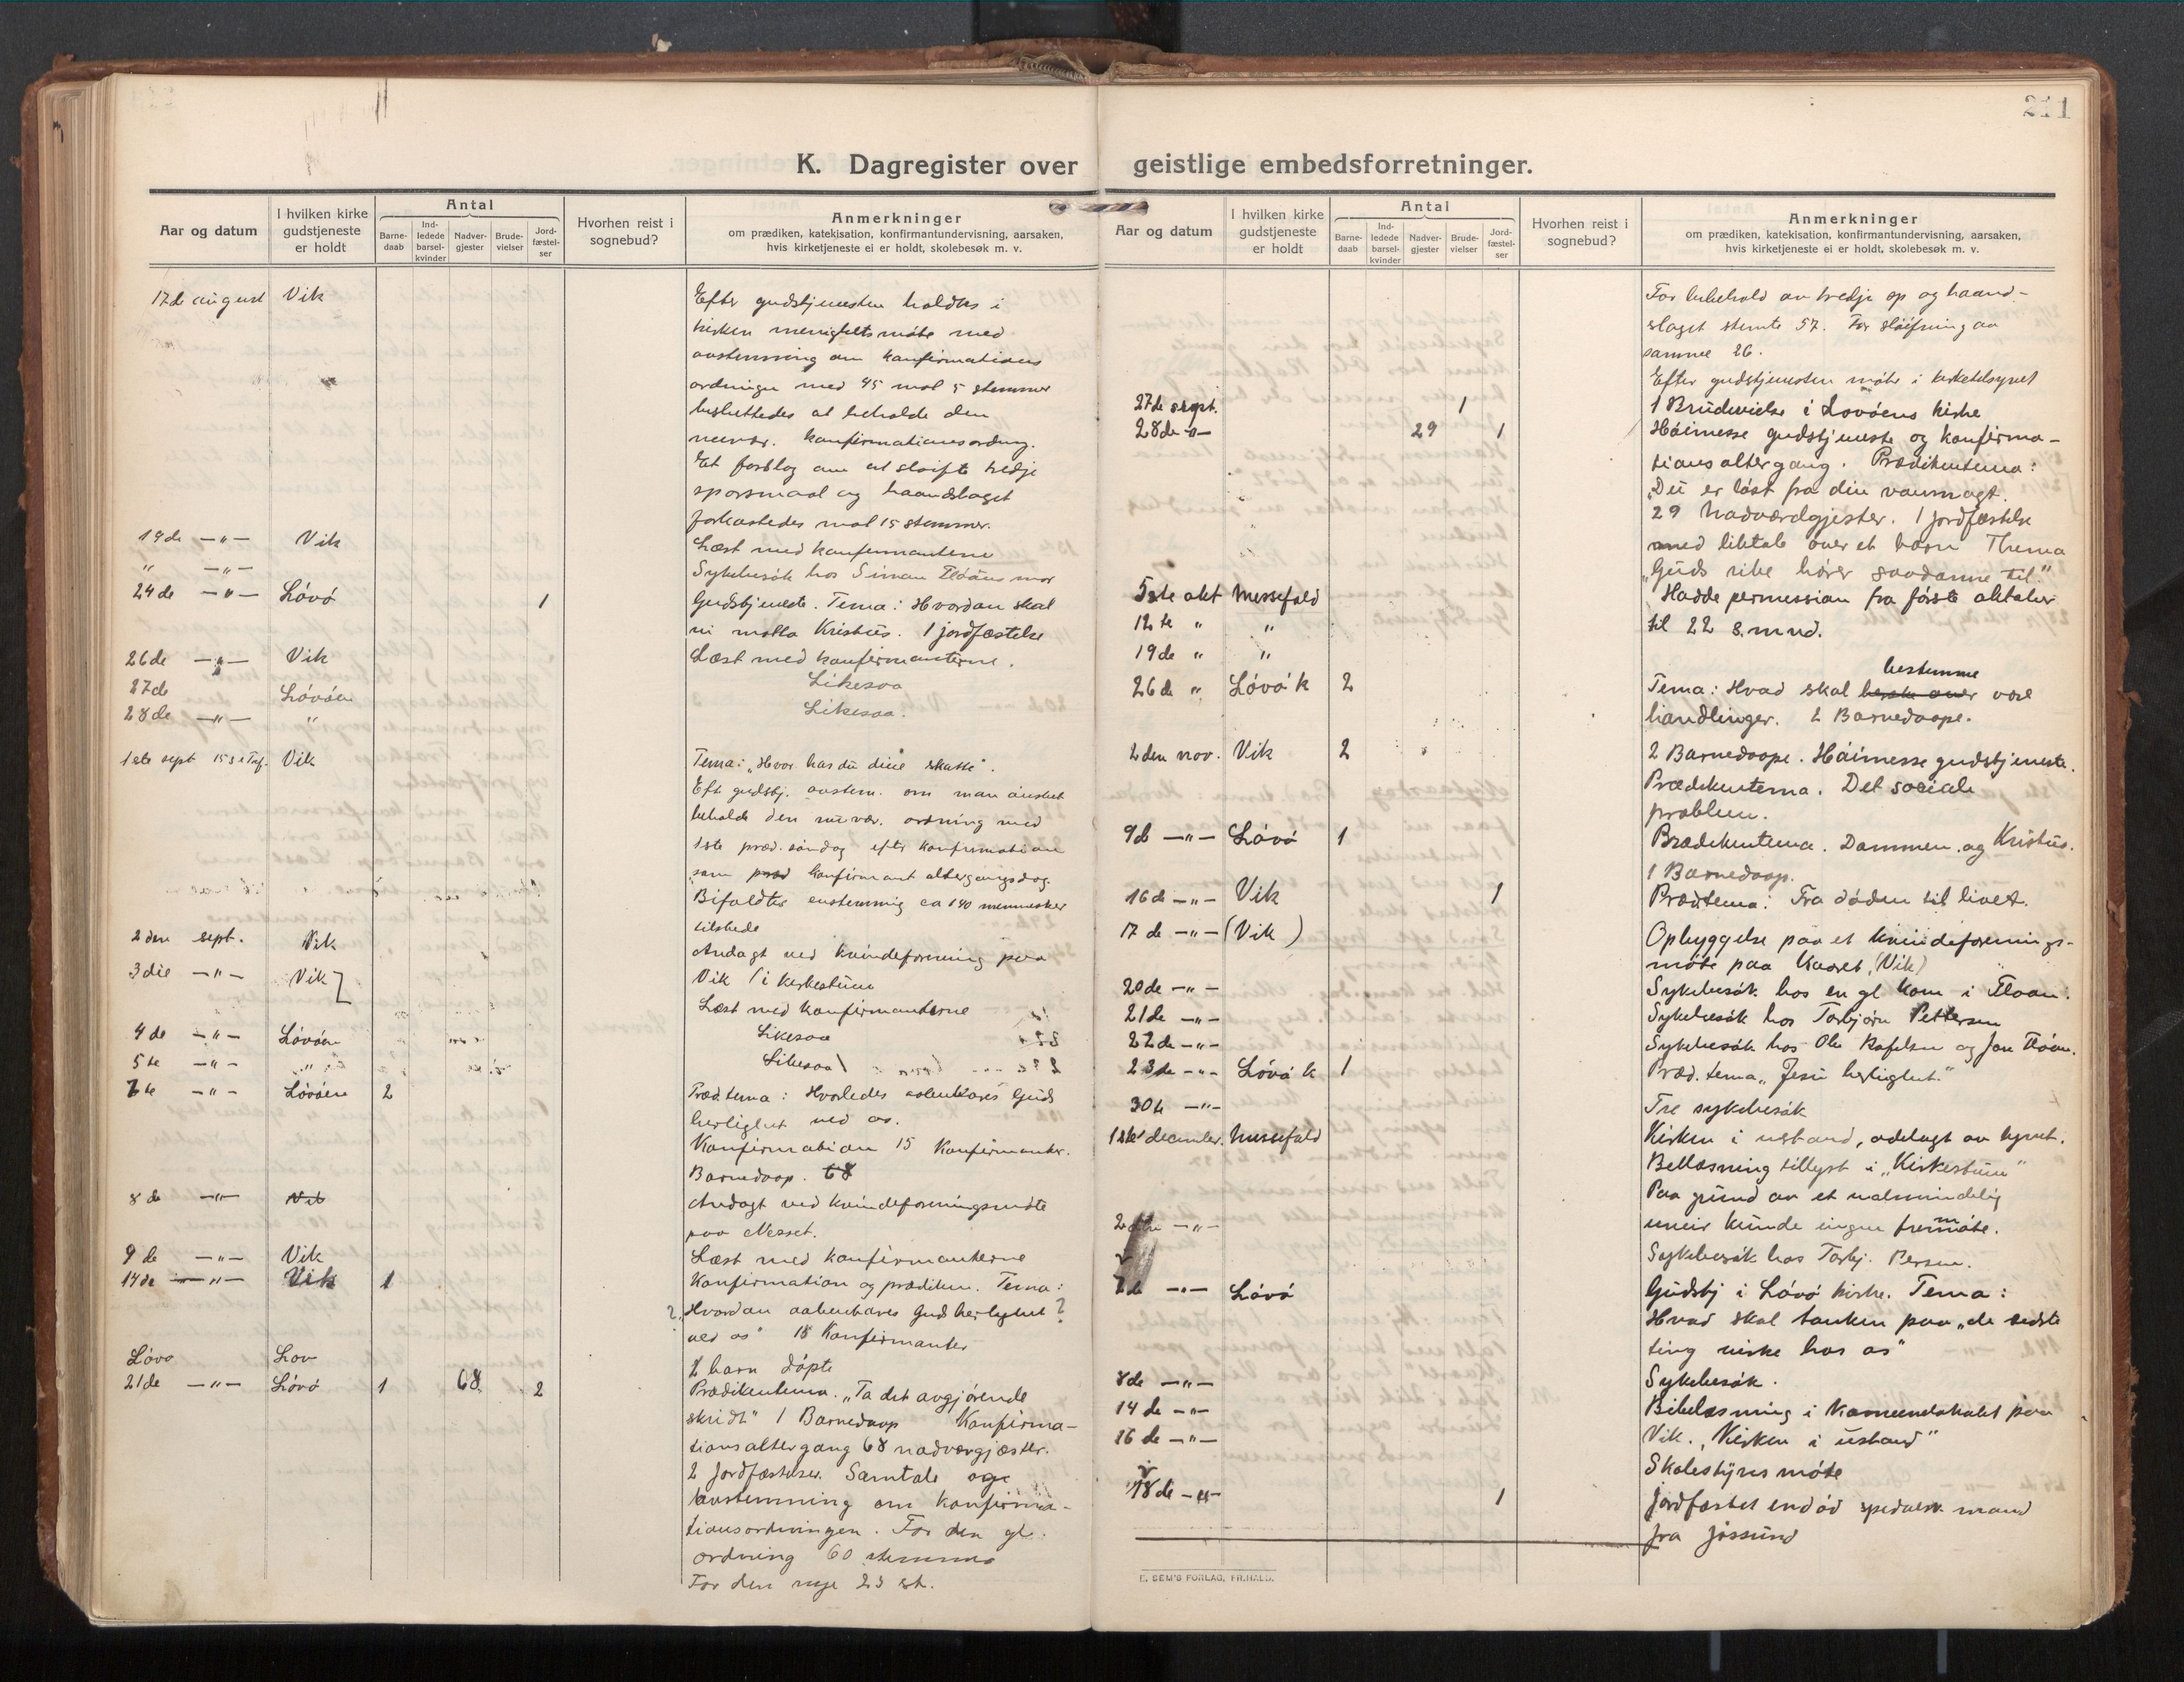 211
K. Dagregister over geistlige embedsforretninger.
Aar og datum
I hvilken kirke gudstjeneste er holdt
Antal
Barne-daab
Ind-ledede barsel-kvinder
Nadver-gjester
Brude-vielser
Jord-fæstel-ser
Hvorhen reist i sognebud?
Anmerkninger
om prædiken, katekisation, konfirmantundervisning, aarsaken,
hvis kirketjeneste ei er holdt, skolebesøk m. v.
17de august Vik Efter gudstjenesten holdtes i
kirken menighetsmøte med
avstemning om konfirmations
ordningen med 45 mot 5 stemmer
besluttedes at beholde den
nuvær. konfirmationsordng.
Et forslag om at sløife tredje
spørsmaal og haandslaget
forkastedes mot 15 stemmer.
19de —"— Vik Læst med konfirmantene
" —"— Sykebesøk hos Simon Fløans mor
24de —"— Løvø 1 Gudstjeneste. Tema: Hvordan skal
vi motta Kristus. 1 jordfæstelse
26de —"— Vik Læst med konfirmanterne.
27de Løvøen Likesaa
28de —"— " Likesaa.
1ste sept 15 s e Tref. Vik Tema: „Hvor har du dine skatte".
Eft gudstj. avstem. om man ønsket
beholde den nuvær. ordning med
1ste præd. søndag efter konfirmation
som konfirmant altergangsdag.
Bifaldtes enstemmig ca 140 mennesker
tilstede
2den sept. Vik Andagt ved kvindeforening paa
Vik i kirkestuen
3die —"— Vik Læst med konfirmanterne
4de —"— Løvøen Likesaa
5te —"— " Likesaa
7te —"— Løvøen 2 Præd.tema: Hvorledes aabenbares Guds
herlighet ved os.
Konfirmation 15 Konfirmanter.
Barnedaap. 68
8de —"— Vik Andagt ved kvindeforeningsmøte
paa Nesset.
9de —"— Vik Læst med konfirmanterne
14de —"— Vik 1 Konfirmation og prædiken. Tema:
„Hvordan aabenbares Guds herlighet
ved os" 18 Konfirmanter
Løvø Løv 2 barn døpte
21de —"— Løvø 1 68 2 Prædikentema. „Ta det avgjørende
skridt" 1 Barnedaap Konfirma-
tionsaltergang 68 nadvergjæster.
2 Jordfæstelser. Samtale og
avstemning om konfirma-
tionsordningen. For den gl.
ordning 60 stemmer
For den nye 23 st.
Aar og datum
I hvilken kirke gudstjeneste er holdt
Antal
Barne-daab
Ind-ledede barsel-kvinder
Nadver-gjester
Brude-vielser
Jord-fæstel-ser
Hvorhen reist i sognebud?
Anmerkninger
om prædiken, katekisation, konfirmantundervisning, aarsaken,
hvis kirketjeneste ei er holdt, skolebesøk m. v.
For bibehold av tredje sp og haand-
slaget stemte 57. For sløifning av
samme 26.
Efter gudstjenesten møte i kirketilsynet
27de sept. 1 1 Brudevielse i Løvøens kirke
28de —"— 29 1 Høimesse gudstjeneste og konfirma-
tionsaltergang. Prædikentema:
„Du er løst fra din vanmagt.
29 Nadværdgjester. 1 jordfæstelse
med liktale over et barn Thema
„Guds rike hører saadanne til."
5te okt Messefald Hadde permission fra første oktober
12te " " til 22 s. mnd.
19de " "
26de " Løvø k 2 Tema: Hvad skal bestemme vore
handlinger. 2 Barnedaape.
2den nov. Vik 2 2 Barnedaape. Høimesse gudstjeneste.
Prædikentema. Det sociale
problem.
9de —"— Løvø 1 Prædikentema. Dommen og Kristus.
1 Barnedaap.
16de —"— Vik 1 Præd.tema: Fra døden til livet.
17de —"— (Vik) Opbyggelse paa et kvindeforenings-
møte paa (Vik)
20de —"— Sykebesøk hos en gl kone i Fløan.
21de —"— Sykebesøk hos Torbjørn Pettersen
22de —"— Sykebesøk hos Ole og Fløan.
23de —"— Løvø k 1 Præd.tema „Jesu herlighet."
30te —"— Tre sykebesøk
1ste december. Messefald Kirken i ustand, ødelagt av lynet.
Bellæsning tillyst i „Kirkestuen"
Paa grund av et ualmindelig
uveir kunde ingen fremmøte.
2den —"— Sykebesøk hos Torbj. Persen.
7de —"— Løvø Gudstj i Løvø kirke. Tema:
Hvad skal tanken paa „de sidste
ting virke hos os"
8de —"— Sykebesøk.
14de —"— Bibelæsning i Kommunelokalet paa
Vik. „Kirken i ustand"
16de —"— Skolestyresmøte
18de —"— 1 Jordfæstet en død spedalsk mand
fra Jøssund
E. SEM'S FORLAG, FR.HALD.